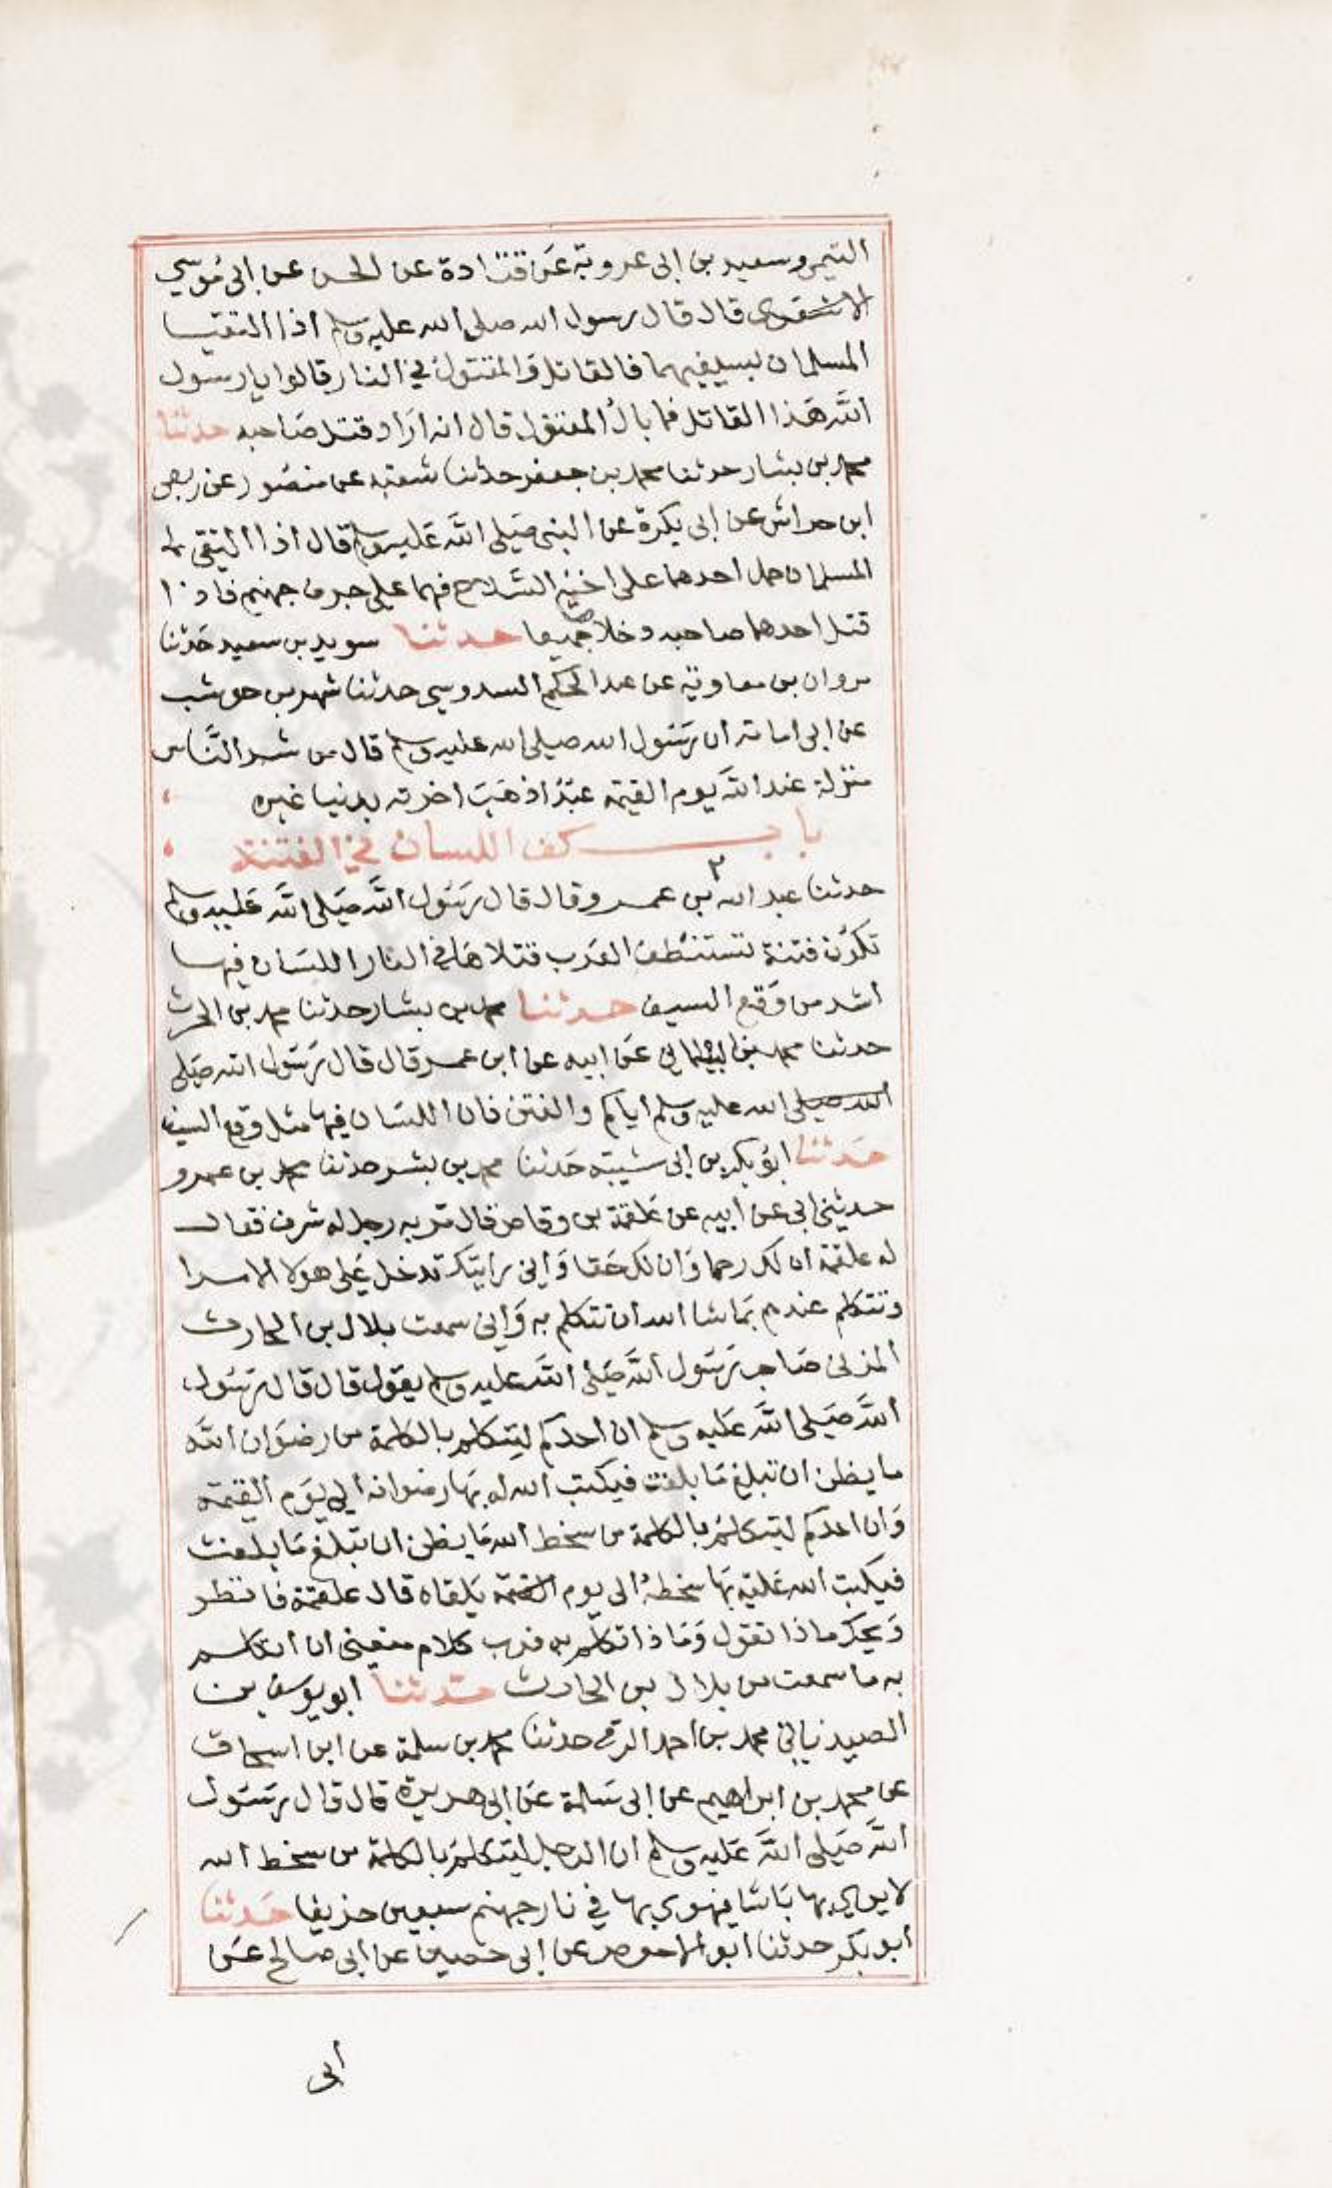 التيمي وسعيد بن ابى عروبة عن قتادة عن الحسن عن ابى موسي
الاشعرى قال قال رسول الله صلى الله عليه وسلم اذا التقيا
المسلمان بسيفيهما فالقاتل والمقتول في النار قالوا يا رسول
الله هذا القاتل فما بال المقتول قال انه اراد قتل صاحبه حدثنا
محمد بن بشار حدثنا محمد بن جعفر حدثنا شعبة عن منصور عن ربعى
ابن حراش عن ابى بكرة عن النبى صلى الله عليه وسلم قال اذا التقى
المسلمان حمل احدهما على اخيه السلاح فهما على جرف جهنم فاذا
قتل احدهما صاحبه دخلاها جميعا حدثنا سويد بن سعيد حدثنا
مروان بن معاوية عن عبد الحكم السدوسي حدثنا شهر بن حوشب
عن ابى امامة ان رسول الله صلى الله عليه وسلم قال من شر الناس
منزلة عند الله يوم القيمة عبد اذهب اخرته بدنيا غيره
باب كف اللسان في الفتنة
حدثنا عبد الله بن عمرو قال قال رسول الله صلى الله عليه وسلم
تكون فتنة تستنظف العرب قتلاها في النار اللسان فيها
اشد من وقع السيف حدثنا محمد بن بشار حدثنا محمد بن الحرث
حدثنا محمد بن البيلماني عن ابيه عن ابن عمر قال قال رسول الله صلى
الله صلى الله عليه وسلم اياكم والفتن فان اللسان فيها مثل وقع السيف
حدثنا ابو بكر بن ابى شيبة حدثنا محمد بن بشر حدثنا محمد بن عمرو
حدثنى ابى عن ابيه عن علقمة بن وقاص قال مر به رجل له شرف فقال
له علقمة ان لك رحما وان لك حقا وانى رايتك تدخل على هولا الامرا
وتتكلم عندهم بما شا الله ان تتكلم به وانى سمعت بلال بن الحارث
المزنى صاحب رسول الله صلى الله عليه وسلم يقول قال قال رسول
الله صلى الله عليه وسلم ان احدكم ليتكلم بالكلمة من رضوان الله
ما يظن ان تبلغ ما بلغت فيكتب الله له بها رضوانه الى يوم القيمة
وان احدكم ليتكلم بالكلمة من سخط الله ما يظن ان تبلغ ما بلغت
فيكتب الله عليه بها سخطه الى يوم القيمة يلقاه قال علقمة فانظر
ويحك ماذا تقول وماذا تكلم به فرب كلام منعنى ان اتكلم
به ما سمعت من بلال بن الحارث حدثنا ابو يوسف بن
الصيدناني محمد بن احمد الرقى حدثنا محمد بن سلمة عن ابن اسحاق
عن محمد بن ابراهيم عن ابى سلمة عن ابى هريرة قال قال رسول
الله صلى الله عليه وسلم ان الرجل ليتكلم بالكلمة من سخط الله
لا يرى بها باسا فيهوي بها في نار جهنم سبعين خريفا حدثنا
أبو بكر حدثنا ابو الاحوص عن ابى حصين عن ابى صالح عن
أبى